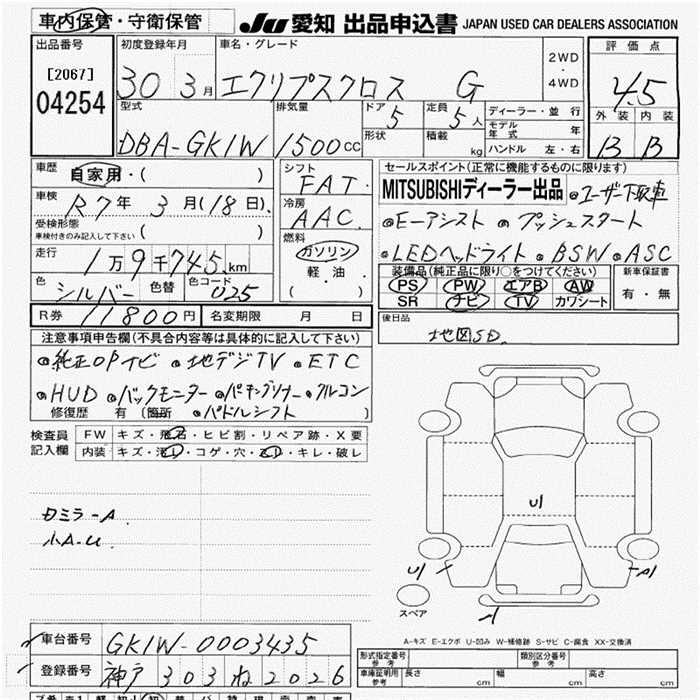 車内保管・守衛保管
JU 愛知 出品申込書 JAPAN USED CAR DEALERS ASSOCIATION
出品番号
[2067]
04254
初度登録年月
30 3月
車名・グレード
エクリプスクロス G
2WD
・
4WD
評価点
4.5
外装 内装
B B
型式
DBA-GK1W
排気量
1500cc
ドア 5
形状
定員 5人
積載 kg
ディーラー・並行
モデル年式 年
ハンドル 左・右
車歴
自家用・( )
車検
R7年 3月(18日)
受検形態
車検付きのみ記入して下さい ( )
走行
1万9千745km
色 シルバー 色替 色コード U25
シフト
FAT
冷房
AAC
燃料
ガソリン
軽油・
( )
セールスポイント(正常に機能するものに限り)
MITSUBISHIディーラー出品 ◎ユーザー下取車
◎E-アシスト ◎プッシュスタート
◎LEDヘッドライト ◎BSW ◎ASC
装備品(純正品に限り○をつけてください)
PS PW エアB AW
SR ナビ TV カワシート
新車保証書
有・無
R券 11800円 名変期限 月 日
後日品
地図SD
注意事項申告欄(不具合内容等は具体的に記入して下さい)
◎純正OPナビ ◎地デジTV ◎ETC
◎HUD ◎バックモニター ◎パーキングソナー ◎クルコン
修復歴 有(箇所 ◎パドルシフト )
検査員
記入欄
FW キズ・飛石・ヒビ割・リペア跡・X要
内装 キズ・汚レ・コゲ・穴・スレ・キレ・破レ
ミラーA
小A.U
U
U
A
A
スペア
A-キズ E-エクボ U-凹み W-補修跡 S-サビ C-腐食 XX-交換済
車台番号 GK1W-0003435
登録番号 神戸 303 ね 2026
形式指定番号
参考
類別区分番号
参考
車庫証明用
参考
長さ cm 幅 cm 高さ cm